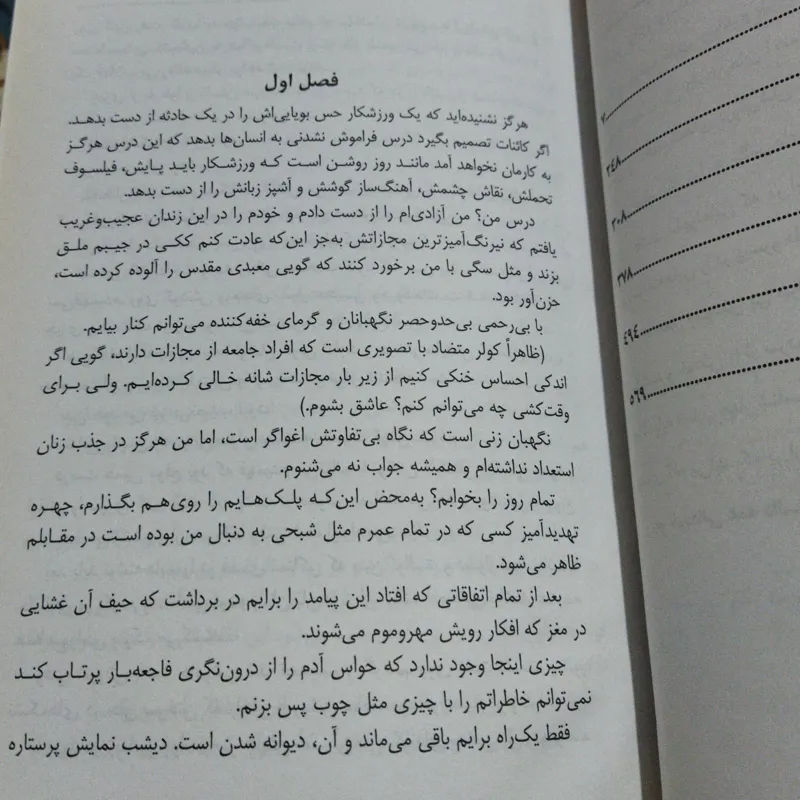 فصل اول
هرگز نشنیده‌اید که یک ورزشکار حس بویایی‌اش را در یک حادثه از دست بدهد.
اگر کائنات تصمیم بگیرد درس فراموش نشدنی به انسان‌ها بدهد که این درس هرگز
به کارمان نخواهد آمد مانند روز روشن است که ورزشکار باید پایش، فیلسوف
تحملش، نقاش چشمش، آهنگ‌ساز گوشش و آشپز زبانش را از دست بدهد.
درس من؟ من آزادی‌ام را از دست دادم و خودم را در این زندان عجیب‌وغریب
یافتم که نیرنگ‌آمیزترین مجازاتش به‌جز این‌که عادت کنم ککی در جیبم ملق
بزند و مثل سگی با من برخورد کنند که گویی معبدی مقدس را آلوده کرده است،
حزن‌آور بود.
با بی‌رحمی بی‌حدوحصر نگهبانان و گرمای خفه‌کننده می‌توانم کنار بیایم.
(ظاهراً کولر متضاد با تصویری است که افراد جامعه از مجازات دارند، گویی اگر
اندکی احساس خنکی کنیم از زیر بار مجازات شانه خالی کرده‌ایم. ولی برای
وقت‌کشی چه می‌توانم کنم؟ عاشق بشوم.)
نگهبان زنی است که نگاه بی‌تفاوتش اغواگر است، اما من هرگز در جذب زنان
استعداد نداشته‌ام و همیشه جواب نه می‌شنوم.
تمام روز را بخوابم؟ به‌محض این‌که پلک‌هایم را روی‌هم بگذارم، چهره
تهدیدآمیز کسی که در تمام عمرم مثل شبحی به دنبال من بوده است در مقابلم
ظاهر می‌شود.
بعد از تمام اتفاقاتی که افتاد این پیامد را برایم در برداشت که حیف آن غشایی
در مغز که افکار رویش مهروموم می‌شوند.
چیزی اینجا وجود ندارد که حواس آدم را از درون‌نگری فاجعه‌بار پرتاب کند
نمی‌توانم خاطراتم را با چیزی مثل چوب پس بزنم.
فقط یک‌راه برایم باقی می‌ماند و آن، دیوانه شدن است. دیشب نمایش پرستاره
۷
۲۴۸
۳۰۸
۳۷۸
۴۹۴
۵۶۹